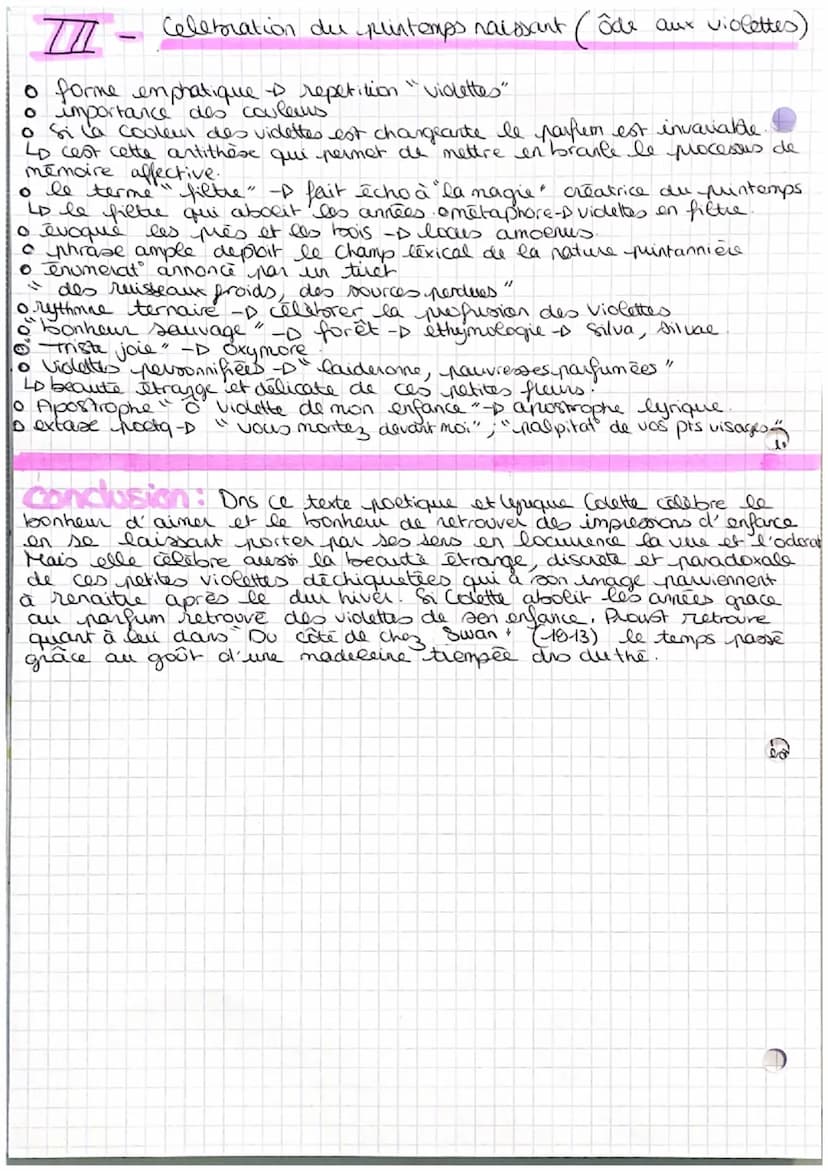 III - Celebration du printemps naissant (ôde aux violettes)
o forme emphatique -> repetition "violettes"
o importance des couleurs
o Si la couleur des violettes est changeante le parfum est invariable.
↳ c'est cette antithèse qui permet de mettre en branle le processus de
mémoire affective.
o le terme "filtre" -> fait écho à "la magie" créatrice du printemps
↳ le filtre qui abolit les années o métaphore -> violettes en filtre.
o évoque les près et les bois -> locus amoenus.
o phrase ample deploit le champ lexical de la nature printannière
o énumerat° annoncé par un tiret
"des ruisseaux froids, des sources perdues"
o rythme ternaire -> célébrer la profusion des violettes
o "bonheur sauvage" -> forêt -> éthymologie -> Silva, silvae
o "Triste joie" -> Oxymore
o Violettes personnifiées -> "laideronne, pauvresses parfumées"
↳ beauté étrange et délicate de ces petites fleurs.
o Apostrophe "ô violette de mon enfance" -> apostrophe lyrique.
o extase poétq -> "vous montez devant moi"; "palpitat° de vos pts visages"
Conclusion: Dns ce texte poetique et lyrique Colette célèbre le
bonheur d'aimer et le bonheur de retrouver des impressions d'enfance
en se laissant porter par ses sens en locurence la vue et l'odorat
Mais elle célèbre aussi la beauté étrange, discrète et paradoxale
de ces petites violettes déchiquetées qui à son image parviennent
à renaitre après le dur hiver. Si Colette abolit les années grace
au parfum retrouvé des violettes de son enfance, Proust retrouve
quant à lui dans "Du côté de chez Swan" (1913) le temps passé
grâce au goût d'une madeleine trempée dns du thé.